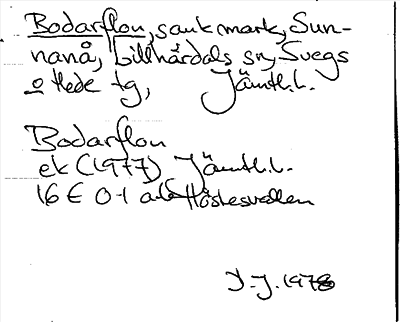 Bodarflon, sank mark, Sun-
nanå, Lillhärdals sn, Svegs
o Hede tg, Jämtl.l.
Bodarflon
ek (1977) Jämtl.l.
16 E 0-1 a-b Höstesvallen
J.J. 1978